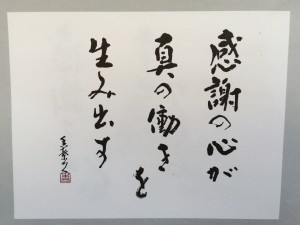 感謝の心が
真の働きを
生み出す